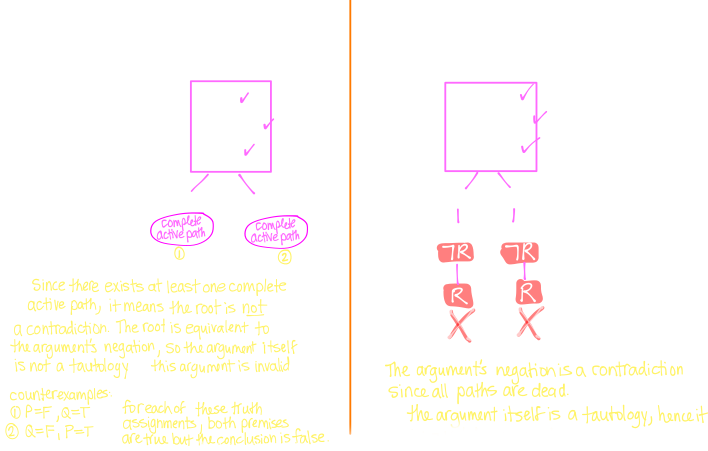 complete
active path
①
complete
active path
②
Since there exists at least one complete
active path, it means the root is not
a contradiction. The root is equivalent to
the argument's negation, so the argument itself
is not a tautology this argument is invalid
counterexamples
① P=F, Q=T
② Q=F, P=T
for each of these truth
assignments, both premises
are true but the conclusion is false.
¬R ¬R
R R
X X
The argument's negation is a contradiction
since all paths are dead
the argument itself is a tautology, hence it